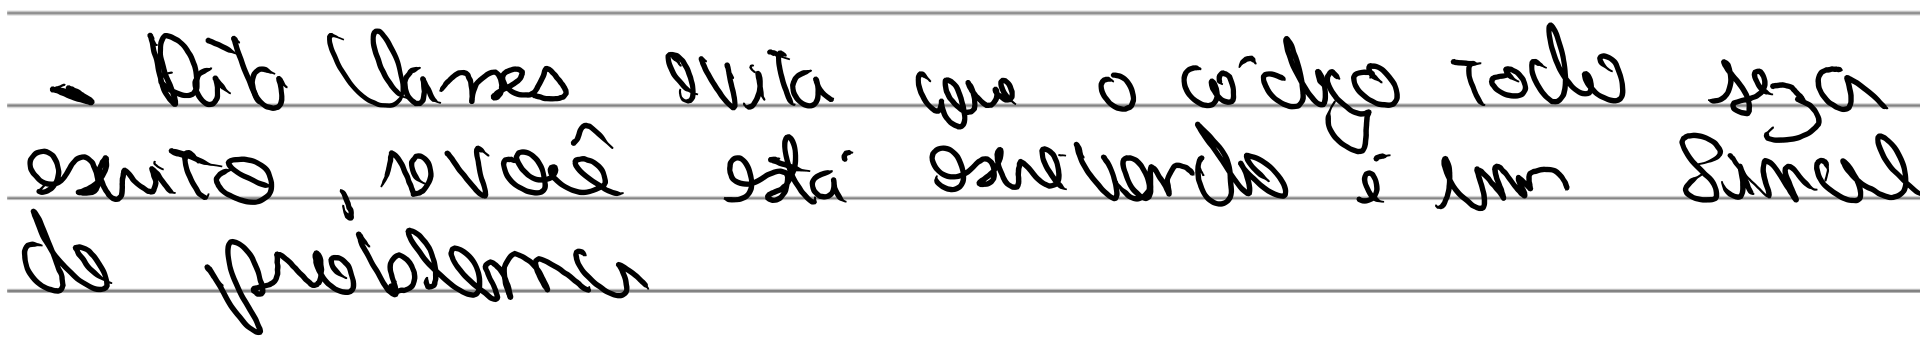 - Data Classes evita que o código todo seja
escrito, se você está escrevendo é um Sinal
de problema